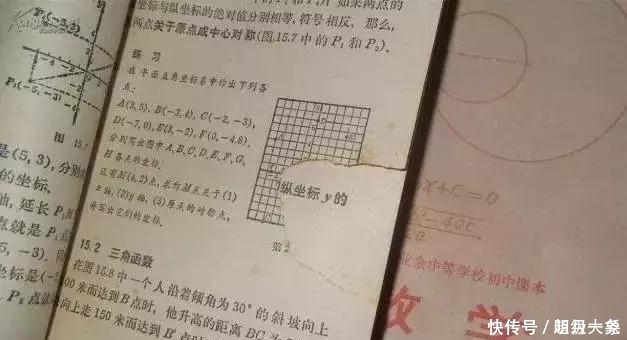 P₃(-5,-3)
图 15.7
是(5, 3), 分别
的坐标.
轴, 延长 P
点就是 P
5, -3).
坐标是(-
P₃ 点
如果两点的
坐标与纵坐标的绝对值分别相等, 符号相反, 那么,
两点关于原点成中心对称(图 15.7 中的 P₁ 和 P₃).
练 习
在平面直角坐标系中作出下列各
点:
A(3,5), B(-3,4), C(-2,-3),
D(-7,0), E(3,-2), F(0,-4.8).
分别写出图中 A, B, C, D, E, F, G,
H 各点的坐标.
设有 M(4,2) 点, 求作 M 点关于 (1)
x 轴, (2) y 轴, (3) 原点的对称点,
并写出它们的坐标.
纵坐标 y 的
15.2 三角函数
在图 15.8 中一个人沿着倾角为 30° 的斜坡向上
00 米而达到 B 点时, 他升高的距离 BC 为
向上走 150 米而达到 B′ 点时
x+C=0
业余中等学校初中课本
数 学
快传号/超级大象